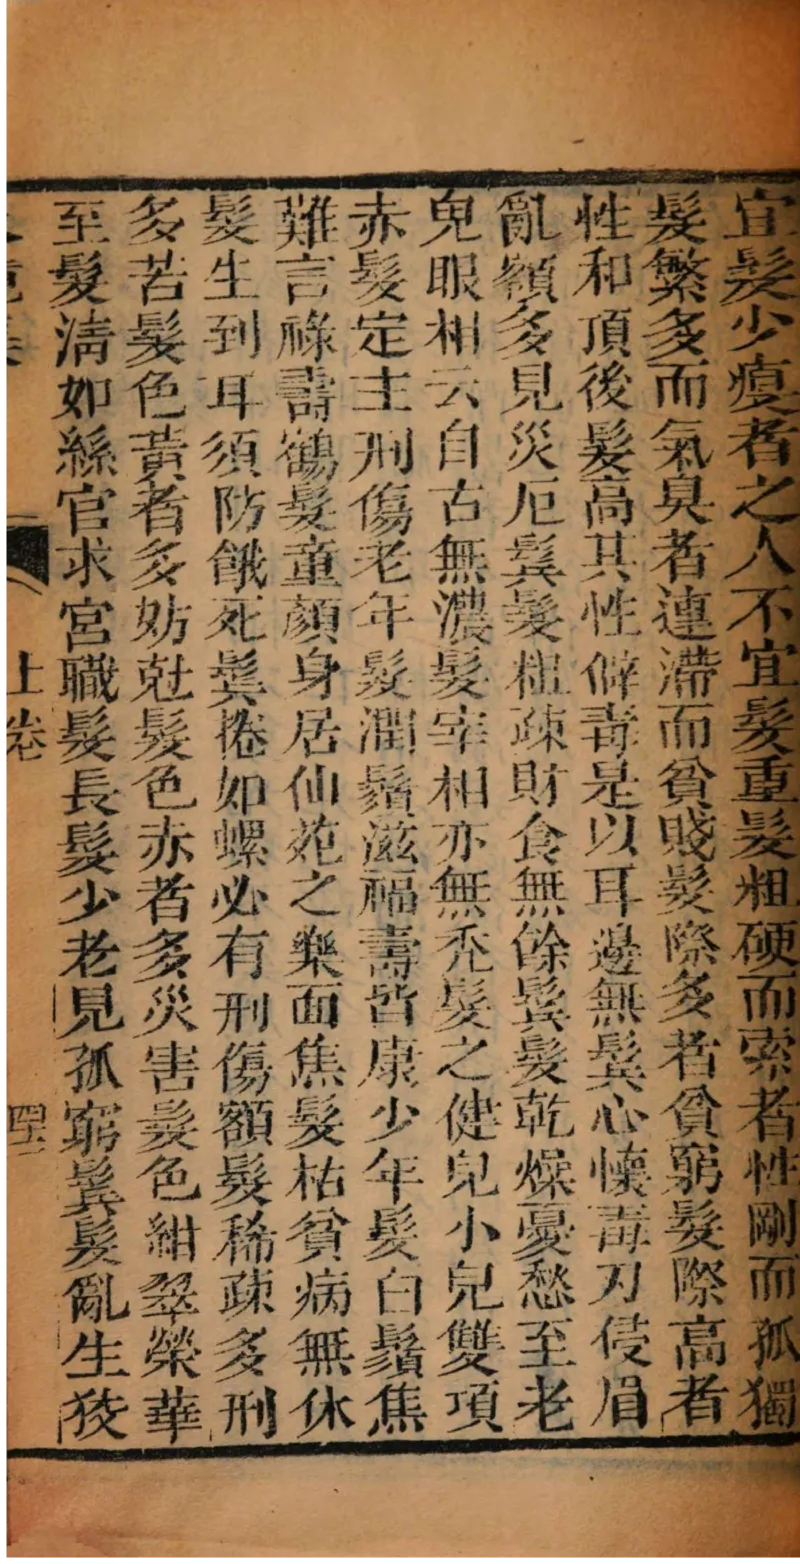 宜髮少瘦者之人不宜髮重髮粗硬而索者性剛而孤獨
髮繁多而氣臭者連滯而貧賤髮際多者貧窮髮際高者
性和頂後髮高其性僻毒是以耳邊無鬂心懐毒刃侵眉
亂額多見災厄鬂髮粗疎財食無餘鬂髮乾燥憂愁至老
鬼眼相云自古無濃髮宰相亦無禿髮之健兒小兒雙項
赤髮定主刑傷老年髮潤鬚滋福壽皆康少年髮白鬚焦
難言祿壽鶴髮童顏身居仙苑之樂面焦髮枯貧病無休
髮生到耳須防餓死鬂捲如螺必有刑傷額髮稀疎多刑
多若髮色黃者多妨尅髮色赤者多災害髮色紺翠榮華
至髮清如絲官求宮職髮長髮少老見孤窮鬂髮亂生狡
上卷